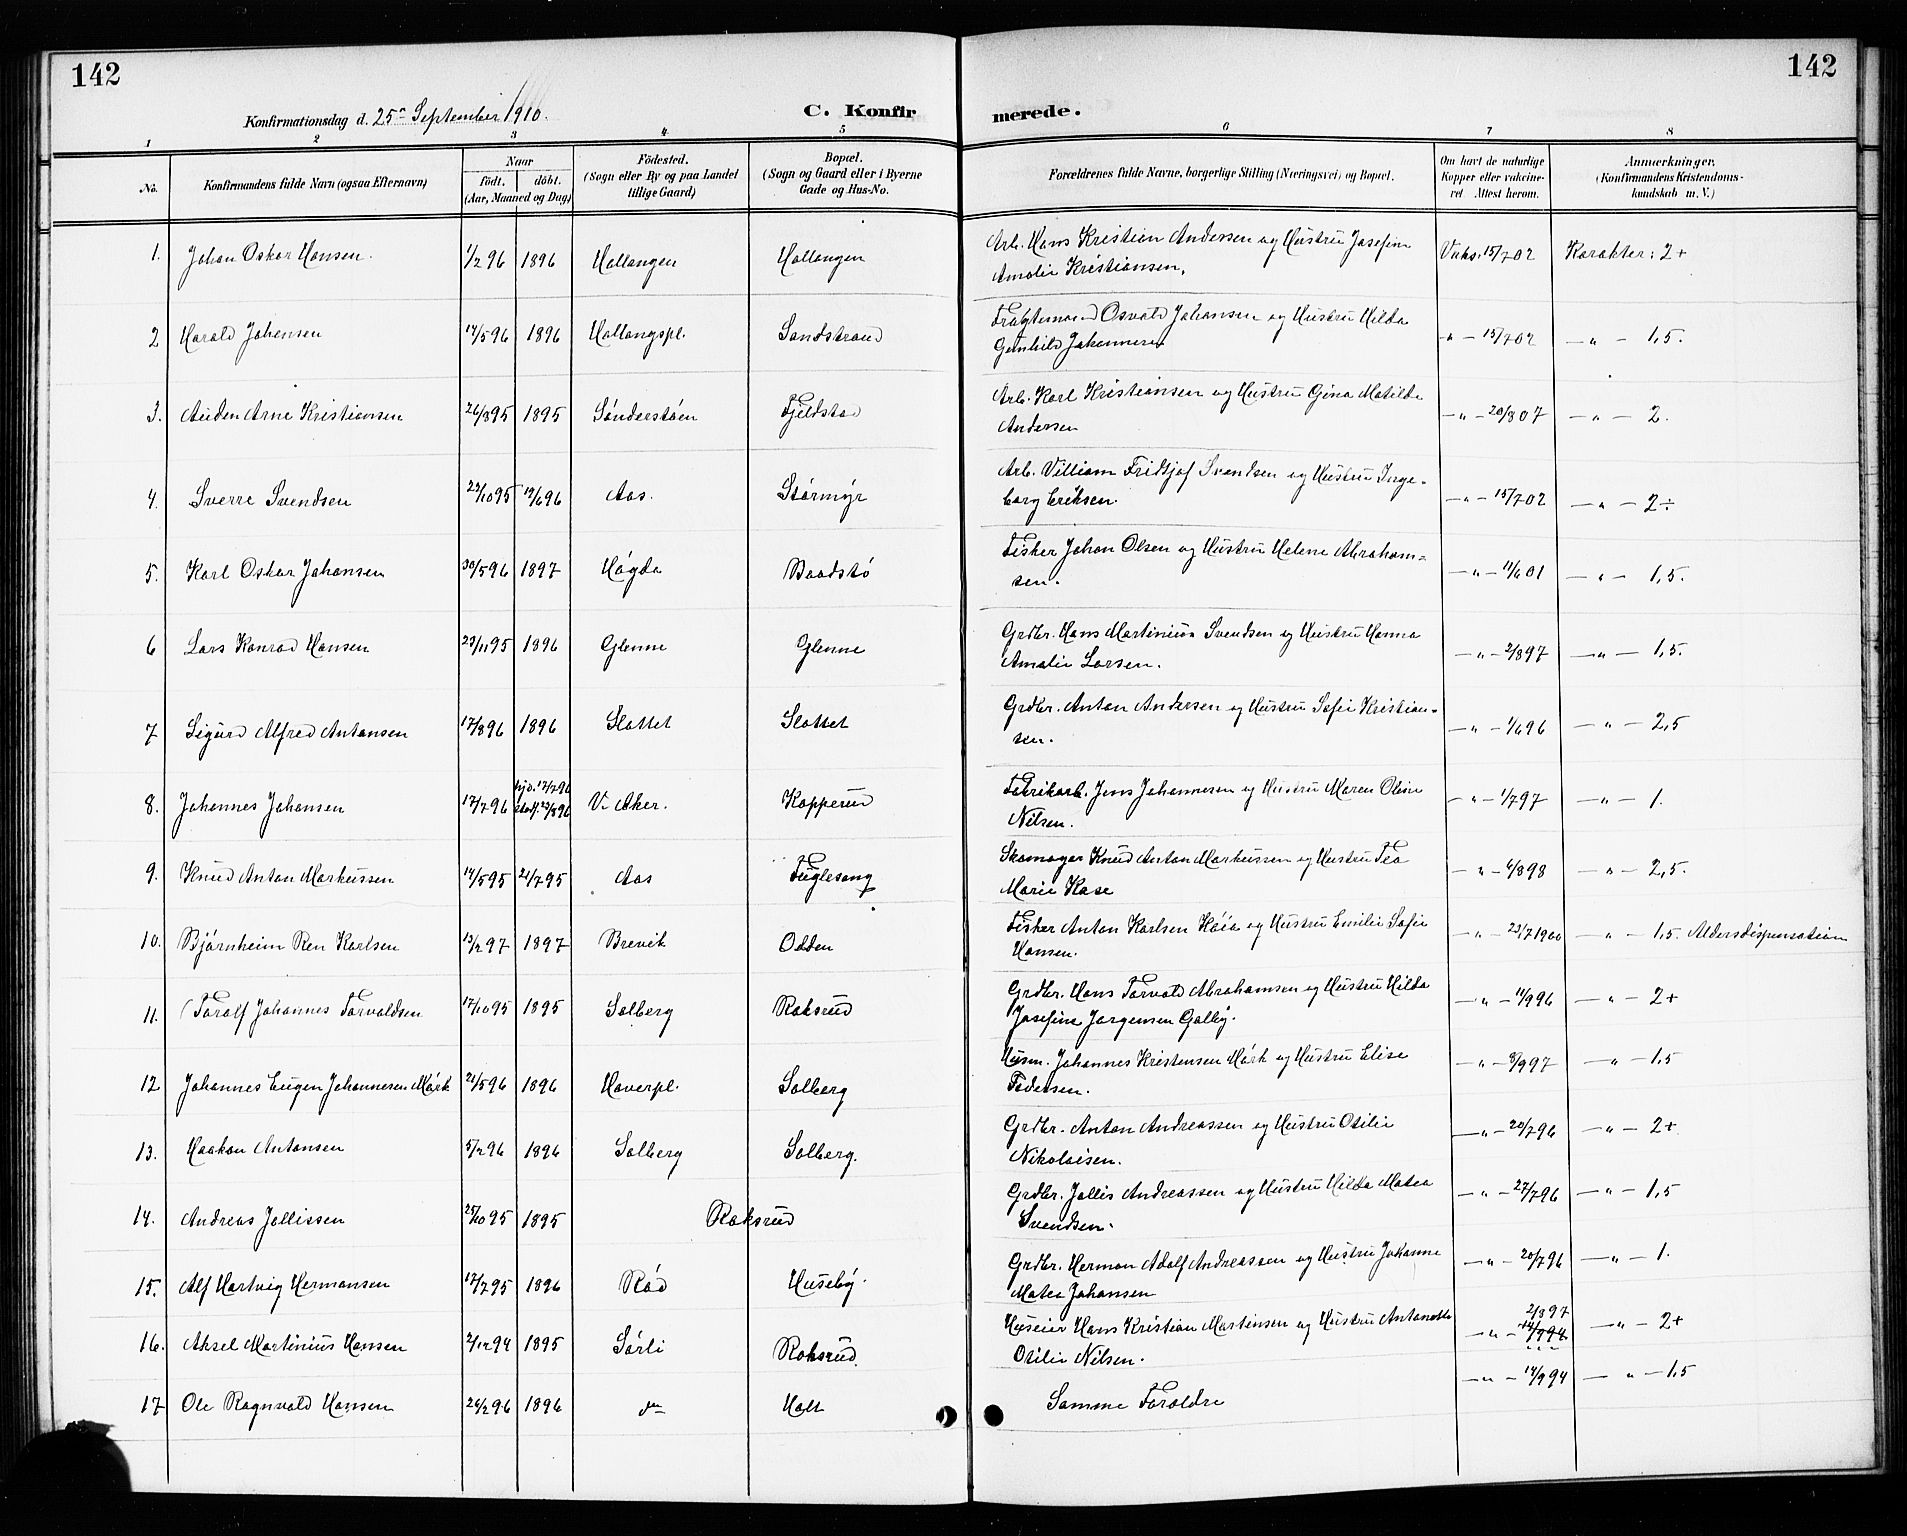 142
142
Konfirmationsdag d. 25de September 1910.
C. Konfirmerede.
1 2 3 4 5 6 7 8
No.
Konfirmandens fulde Navn (ogsaa Efternavn)
Naar
födt. döbt.
(Aar, Maaned og Dag)
Födested.
(Sogn eller By og paa Landet
tillige Gaard)
Bopæl.
(Sogn og Gaard eller i Byerne
Gade og Hus-No.
Forældrenes fulde Navne, borgerlige Stilling (Næringsvei) og Bopæl.
Om havt de naturlige
Kopper eller vakcine-
ret. Attest herom.
Anmærkninger.
(Konfirmandens Kristendoms-
kundskab m. V.)
1. Johan Oskar Hansen. 1/2 96 1896 Hallangen Hallangen Arb. Hans Kristian Andersen og Hustru Josefine Vaks. 15/7 02 Karakter: 2+
Amalie Kristiansen,
2 Harald Johansen 14/5 96 1896 Hallangspl. Sandstrand Fragtemand Osvald Johansen og Hustru Hilda -"- 15/7 02 -"- 1,5.
Gunhild Johannesen
3. Auden Arne Kristiansen 26/8 95 1895 Sønderstøen Fjeldstad Arb. Karl Kristiansen og Hustru Gina Matilda -"- 20/8 07 -"- 2.
Andersen
4. Sverre Svendsen 29/10 95 19/6 96 Aas. Størmyr Arb. Villiam Fridtjof Svendsen og Hustru Inge- -"- 15/7 02 -"- 2÷
borg Eriksen.
5. Karl Oskar Johansen 30/5 96 1897 Høgda Baadstø Fisker Johan Olsen og Hustru Helene Abraham- -"- 11/6 01 -"- 1,5.
sen.
6 Lars Konrad Hansen 23/11 95 1896 Glenne Glenne Grdbr. Hans Martinius Svendsen og Hustru Hanna -"- 2/8 97 -"- 1,5.
Amalie Larsen.
7 Sigurd Alfred Antonsen 17/8 96 1896 Slottet Slottet Grdbr. Anton Andersen og Hustru Sofie Kristian- -"- 1/6 96 -"- 2,5
sen.
8. Johannes Johansen 17/7 96 hjd. 17/7 96 V. Aker. Kopperud Fabrikarb. Jens Johannesen og Hustru Maren Oline -"- 1/7 97 -"- 1.
stadf. 23/8 96 Nilsen.
9. Knud Anton Markussen 14/5 95 21/7 95 Aas Fuglesang Skomager Knud Anton Markussen og Hustru Tea -"- 6/8 98 -"- 2,5.
Marie Kase
10. Bjørnheim Ren Karlsen 13/2 97 1897 Brevik Odden Fisker Anton Karlsen Kaia og Hustru Emilie Sofie -"- 23/7 1900 -"- 1,5. Aldersdispensation
Hansen.
11. Toralf Johannes Torvaldsen 17/10 95 1895 Solberg Roksrud Grdbr. Hans Torvald Abrahamsen og Hustru Hilda -"- 11/9 96 -"- 2+
Josefine Jørgensen Galby.
12 Johannes Eugen Johannesen Mørk 21/5 96 1896 Haverpl. Solberg Husm. Johannes Kristensen Mørk og Hustru Elise -"- 8/9 97 -"- 1,5
Pedersen.
13. Haakon Antonsen 5/2 96 1896 Solberg Solberg. Grdbr. Anton Andreassen og Hustru Otilie -"- 20/7 96 -"- 2+
Nikolaisen.
14. Andreas Jallissen 25/10 95 1895 Roksrud Grdbr. Jallis Andreassen og Hustru Hilda Matea -"- 27/7 96 -"- 1,5
Svendsen.
15. Alf Hartvig Hermansen 17/7 95 1896 Rød Huseby. Grdbr. Herman Adolf Andreassen og Hustru Johanne -"- 20/7 96 -"- 1.
Matea Johansen
16. Aksel Martinius Hansen 2/12 94 1895 Sørli Roksrud. Huseier Hans Kristian Martinsen og Hustru Antonette 2/8 97 -"- 2+
Otilie Nilsen.
17 Ole Ragnvald Hansen 26/2 96 1896 do Holt Samme Foraldre -"- 14/9 94 -"- 1,5